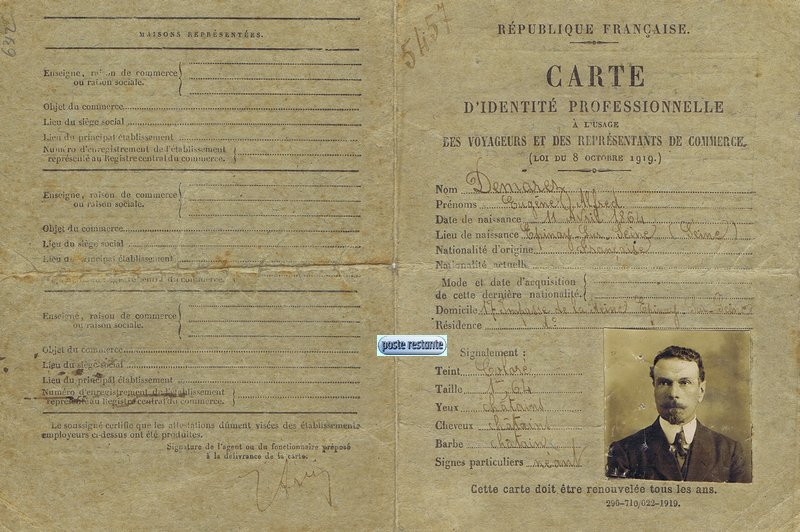 642
MAISONS REPRÉSENTÉES.
Enseigne, raison de commerce
ou raison sociale.
Objet du commerce
Lieu du siège social
Lieu du principal établissement
Numéro d'enregistrement de l'établissement
représenté au Registre central du commerce.
Enseigne, raison de commerce
ou raison sociale.
Objet du commerce
Lieu du siège social
Lieu du principal établissement
Numéro d'enregistrement de l'établissement
représenté au Registre central du commerce.
Enseigne, raison de commerce
ou raison sociale.
Objet du commerce
Lieu du siège social
Lieu du principal établissement
Numéro d'enregistrement de l'établissement
représenté au Registre central du commerce.
Le soussigné certifie que les attestations dûment visées des établissements
employeurs ci-dessus ont été produites.
Signature de l'agent ou du fonctionnaire préposé
à la délivrance de la carte.
5457
RÉPUBLIQUE FRANÇAISE.
CARTE
D'IDENTITÉ PROFESSIONNELLE
À L'USAGE
DES VOYAGEURS ET DES REPRÉSENTANTS DE COMMERCE.
(LOI DU 8 OCTOBRE 1919.)
Nom Demarez
Prénoms Eugène Alfred
Date de naissance 11 Avril 1864
Lieu de naissance Epinay-sur-Seine (Seine)
Nationalité d'origine Française
Nationalité actuelle
Mode et date d'acquisition
de cette dernière nationalité.
Domicile 17 Impasse de la Epinay-sur-Seine
Résidence
Signalement :
Teint
Taille 1m64
Yeux chatains
Cheveux chatains
Barbe chatain
Signes particuliers néant
poste restante
Cette carte doit être renouvelée tous les ans.
296-710/622-1919.